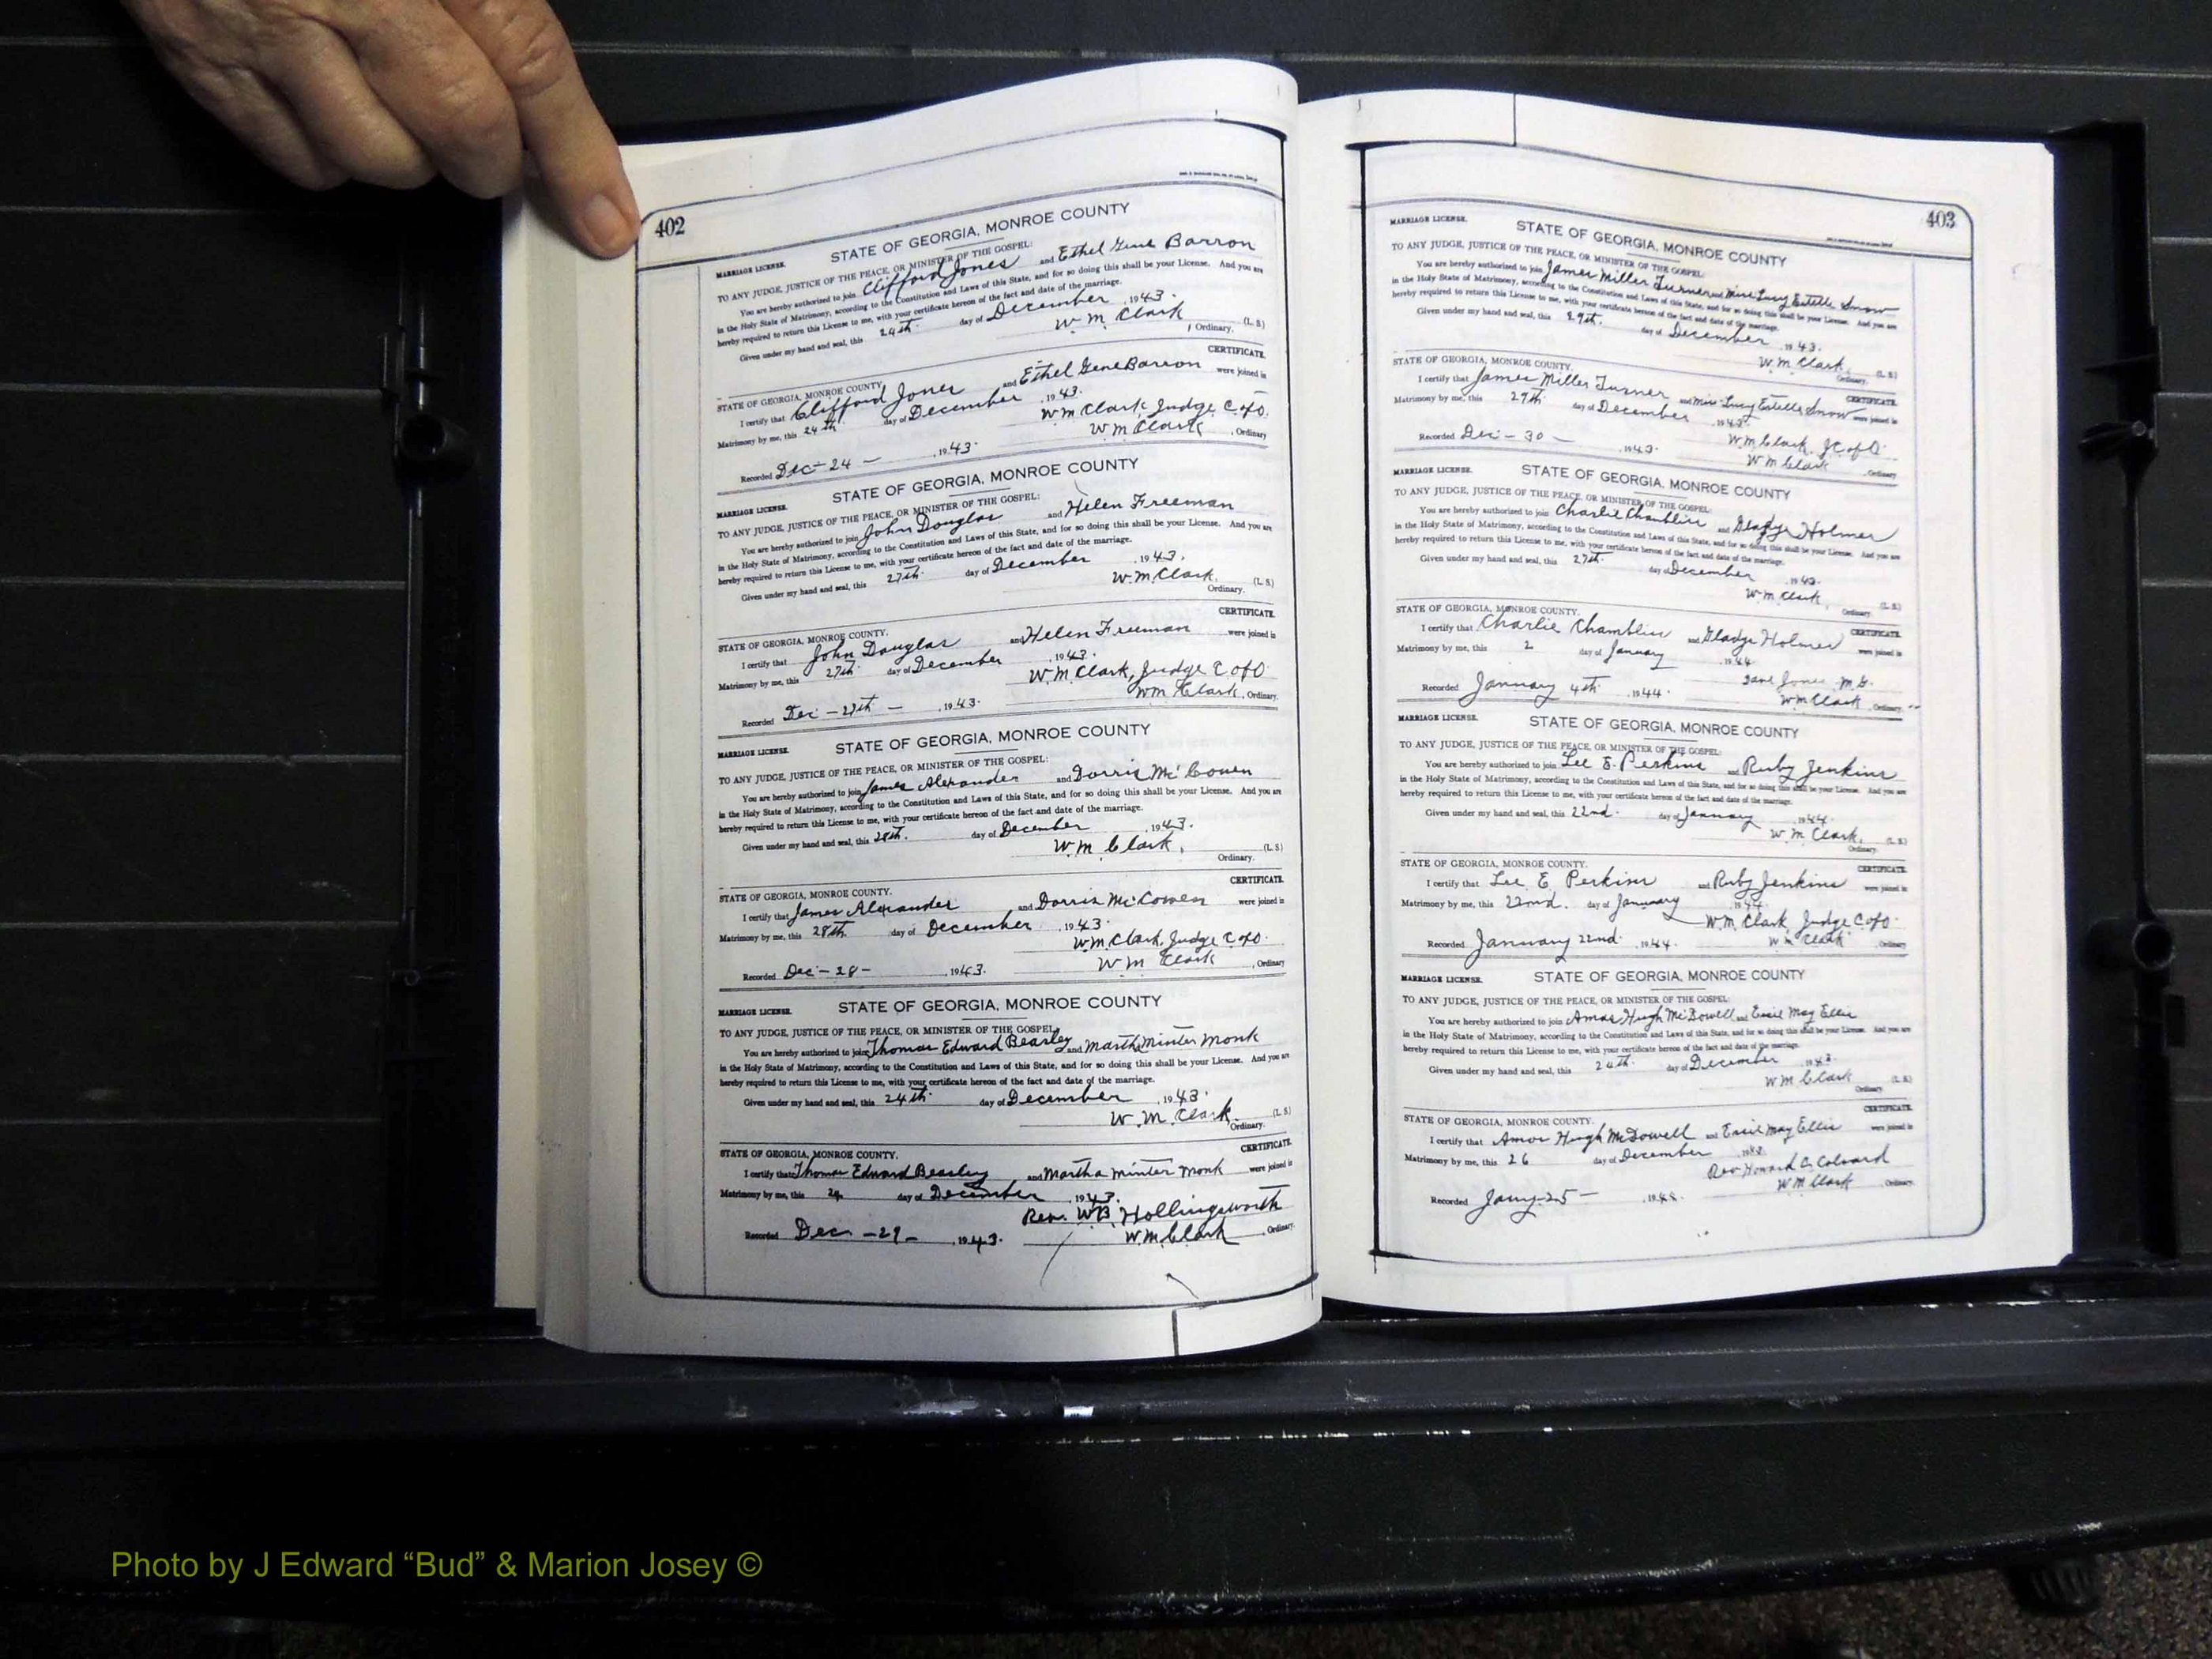 402
MARRIAGE LICENSE. STATE OF GEORGIA, MONROE COUNTY
TO ANY JUDGE, JUSTICE OF THE PEACE, OR MINISTER OF THE GOSPEL:
You are hereby authorized to join Clifford Jones and Ethel Gene Barron
in the Holy State of Matrimony, according to the Constitution and Laws of this State, and for so doing this shall be your License. And you are
hereby required to return this License to me, with your certificate hereon of the fact and date of the marriage.
Given under my hand and seal, this 24th day of December, 1943.
W. M. Clark (L. S.)
Ordinary.
CERTIFICATE.
STATE OF GEORGIA, MONROE COUNTY.
I certify that Clifford Jones and Ethel Gene Barron were joined in
Matrimony by me, this 24th day of December, 1943.
W. M. Clark, Judge C of O.
Recorded Dec-24-, 1943. W M Clark, Ordinary
MARRIAGE LICENSE. STATE OF GEORGIA, MONROE COUNTY
TO ANY JUDGE, JUSTICE OF THE PEACE, OR MINISTER OF THE GOSPEL:
You are hereby authorized to join John Douglas and Helen Freeman
in the Holy State of Matrimony, according to the Constitution and Laws of this State, and for so doing this shall be your License. And you are
hereby required to return this License to me, with your certificate hereon of the fact and date of the marriage.
Given under my hand and seal, this 27th. day of December, 1943.
W. M. Clark, (L. S.)
Ordinary.
CERTIFICATE.
STATE OF GEORGIA, MONROE COUNTY.
I certify that John Douglas and Helen Freeman were joined in
Matrimony by me, this 27th day of December, 1943.
W. M Clark, Judge C of O
Recorded Dec-27th-, 1943. Wm Clark, Ordinary.
MARRIAGE LICENSE. STATE OF GEORGIA, MONROE COUNTY
TO ANY JUDGE, JUSTICE OF THE PEACE, OR MINISTER OF THE GOSPEL:
You are hereby authorized to join James Alexander and Dorris McCowen
in the Holy State of Matrimony, according to the Constitution and Laws of this State, and for so doing this shall be your License. And you are
hereby required to return this License to me, with your certificate hereon of the fact and date of the marriage.
Given under my hand and seal, this 28th. day of December, 1943.
W. M Clark, (L. S)
Ordinary.
CERTIFICATE.
STATE OF GEORGIA, MONROE COUNTY.
I certify that James Alexander and Dorris McCowen were joined in
Matrimony by me, this 28th day of December, 1943.
W. M. Clark, Judge C of O.
Recorded Dec-28-, 1943. W M Clark, Ordinary
MARRIAGE LICENSE. STATE OF GEORGIA, MONROE COUNTY
TO ANY JUDGE, JUSTICE OF THE PEACE, OR MINISTER OF THE GOSPEL:
You are hereby authorized to join Thomas Edward Beasley and Martha Minter Monk
in the Holy State of Matrimony, according to the Constitution and Laws of this State, and for so doing this shall be your License. And you are
hereby required to return this License to me, with your certificate hereon of the fact and date of the marriage.
Given under my hand and seal, this 24th. day of December, 1943.
W. M. Clark. (L. S)
Ordinary.
CERTIFICATE.
STATE OF GEORGIA, MONROE COUNTY.
I certify that Thomas Edward Beasley and Martha Minter Monk were joined in
Matrimony by me, this 24 day of December, 1943.
Rev. W B. Hollingsworth
Recorded Dec-29-, 1943. W M Clark, Ordinary.
403
MARRIAGE LICENSE. STATE OF GEORGIA, MONROE COUNTY
TO ANY JUDGE, JUSTICE OF THE PEACE, OR MINISTER OF THE GOSPEL:
You are hereby authorized to join James Miller Turner and Miss Lucy Estelle Snow
in the Holy State of Matrimony, according to the Constitution and Laws of this State, and for so doing this shall be your License. And you are
hereby required to return this License to me, with your certificate hereon of the fact and date of the marriage.
Given under my hand and seal, this 29th. day of December, 1943.
W. M. Clark, (L. S.)
Ordinary.
STATE OF GEORGIA, MONROE COUNTY. CERTIFICATE.
I certify that James Miller Turner and Miss Lucy Estelle Snow were joined in
Matrimony by me, this 29th day of December, 1943.
W. M. Clark, J C of O.
Recorded Dec-30-, 1943. W M Clark, Ordinary
MARRIAGE LICENSE. STATE OF GEORGIA, MONROE COUNTY
TO ANY JUDGE, JUSTICE OF THE PEACE, OR MINISTER OF THE GOSPEL:
You are hereby authorized to join Charlie Chamblis and Gladys Holmes
in the Holy State of Matrimony, according to the Constitution and Laws of this State, and for so doing this shall be your License. And you are
hereby required to return this License to me, with your certificate hereon of the fact and date of the marriage.
Given under my hand and seal, this 27th. day of December, 1943.
W. M. Clark, (L. S.)
Ordinary.
STATE OF GEORGIA, MONROE COUNTY. CERTIFICATE.
I certify that Charlie Chamblis and Gladys Holmes were joined in
Matrimony by me, this 2 day of January, 1944.
Jones M. G.
Recorded January 4th, 1944. W M Clark, Ordinary.
MARRIAGE LICENSE. STATE OF GEORGIA, MONROE COUNTY
TO ANY JUDGE, JUSTICE OF THE PEACE, OR MINISTER OF THE GOSPEL:
You are hereby authorized to join Lee E. Perkins and Ruby Jenkins
in the Holy State of Matrimony, according to the Constitution and Laws of this State, and for so doing this shall be your License. And you are
hereby required to return this License to me, with your certificate hereon of the fact and date of the marriage.
Given under my hand and seal, this 22nd. day of January, 1944.
W. M. Clark, (L. S.)
Ordinary.
STATE OF GEORGIA, MONROE COUNTY. CERTIFICATE.
I certify that Lee E. Perkins and Ruby Jenkins were joined in
Matrimony by me, this 22nd. day of January, 1944.
W. M. Clark, Judge C of O.
Recorded January 22nd, 1944. W M Clark, Ordinary
MARRIAGE LICENSE. STATE OF GEORGIA, MONROE COUNTY
TO ANY JUDGE, JUSTICE OF THE PEACE, OR MINISTER OF THE GOSPEL:
You are hereby authorized to join Amos Hugh McDowell and Essie May Ellis
in the Holy State of Matrimony, according to the Constitution and Laws of this State, and for so doing this shall be your License. And you are
hereby required to return this License to me, with your certificate hereon of the fact and date of the marriage.
Given under my hand and seal, this 24th. day of December, 1943.
W M Clark (L. S.)
Ordinary.
CERTIFICATE.
STATE OF GEORGIA, MONROE COUNTY.
I certify that Amos Hugh McDowell and Essie May Ellis were joined in
Matrimony by me, this 26 day of December, 1943.
Rev Howard C. Colvard
Recorded Jany-25-, 1944. W M Clark, Ordinary.
Photo by J Edward “Bud” & Marion Josey ©